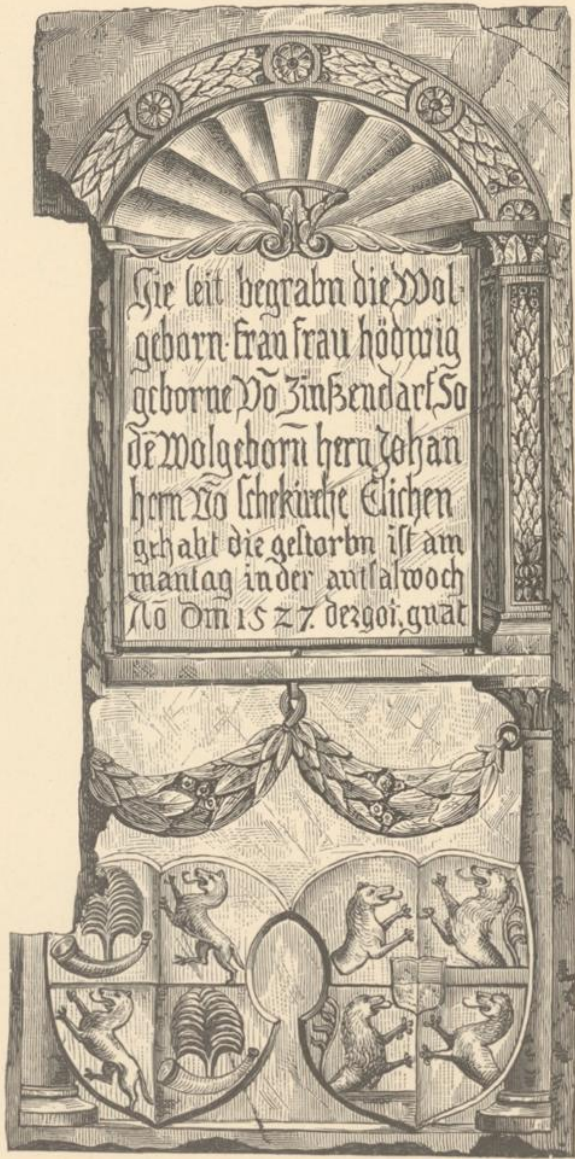 Hie leit begrabn die Wol-
geborn · frau frau hödwig
geborne Võ Zinßendarf So
dē Wolgeborn̄ hern Johan̄
hern Võ schekirche Elichen
gehabt die gestorbn ist am
mantag in der antlaswoch
Ño Dm̄ 1527. der got. gnat